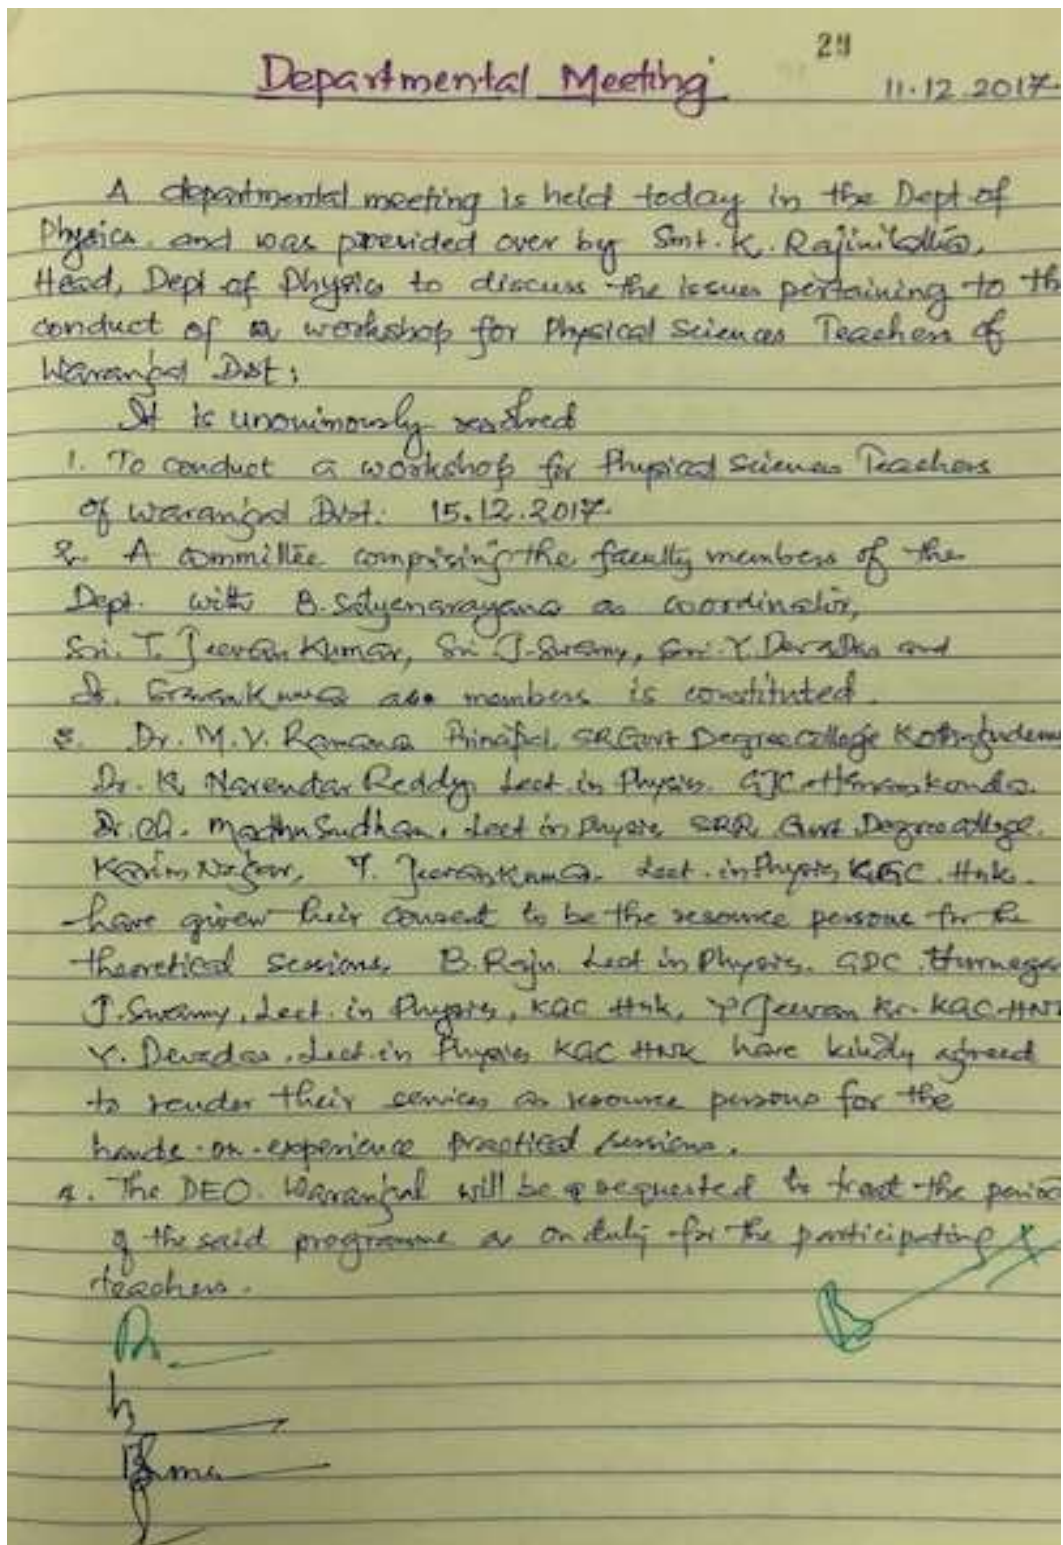 29
Departmental Meeting
11.12.2017.
A departmental meeting is held today in the Dept of
Physics. and was presided over by Smt. K. Rajinilatha,
Head, Dept of Physics to discuss the issues pertaining to th
conduct of a workshop for Physical Sciences Teachers of
Warangal Dist:
It is unonimously resolved
1. To conduct a workshop for Physical Sciences Teachers
of Warangal Dist. 15.12.2017.
2. A committee comprising the faculty members of the
Dept. with B. Satyanarayana as coordinator,
Sri. T. Jeevan Kumar, Sri J. Swamy, Sri. Y. Devadas and
Dr. Sravan Kumar as members is constituted.
3. Dr. M. V. Ramana Principal, SR Govt Degree College Kothagudem
Dr. K. Narendar Reddy, Lect. in Physics. GJC Hanamkonda.
Dr. Ch. Madhu Sudhan, Lect in Physics SRR, Govt. Degree College.
Karim Nagar, T. Jeevan Kumar. Lect. in Physics KGC. Hnk.
have given their consent to be the resource persons for the
theoretical sessions. B. Raju. Lect in Physics. GDC
J. Swamy, Lect. in Physics, KGC Hnk, Jeevan Kr. KGC-HNK
Y. Devadas. Lect. in Physics KGC HNK have kindly agreed
to render their services as resource persons for the
hands-on-experience practical sessions.
4. The DEO. Warangal will be requested to treat the period
of the said programme as on duty for the participating
teachers.